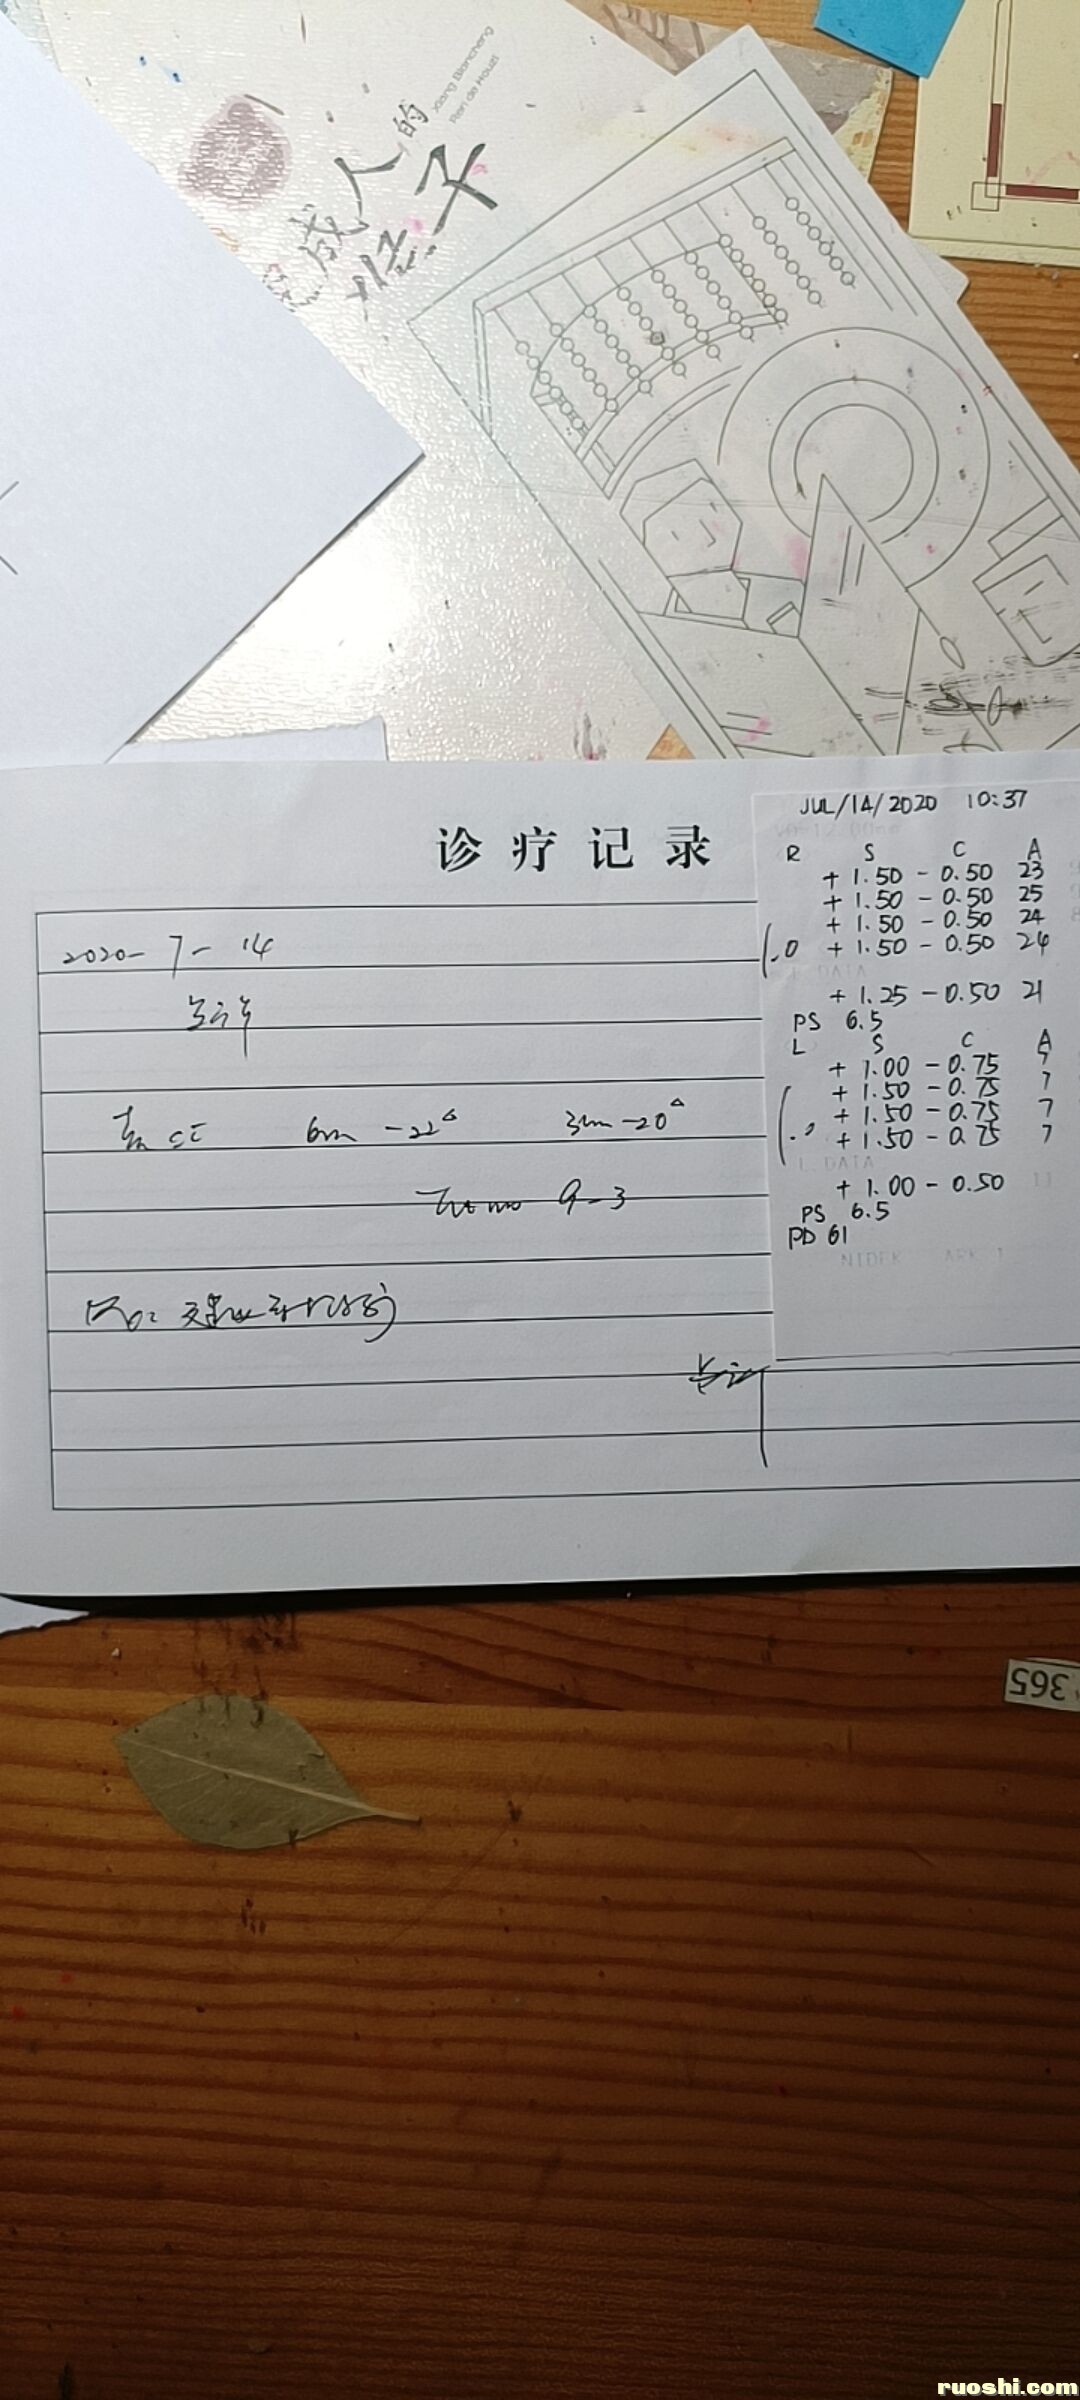 成人的
孩子
Xiang Biancheng
Ren de Houzi
诊疗记录
2020-7-14
6m -22△ 33cm -20△
Titmus 9-3
JUL/14/2020 10:37
R S C A
+ 1.50 - 0.50 23
+ 1.50 - 0.50 25
+ 1.50 - 0.50 24
1.0 + 1.50 - 0.50 24
+ 1.25 - 0.50 21
PS 6.5
L S C A
+ 1.00 - 0.75 7
+ 1.50 - 0.75 7
+ 1.50 - 0.75 7
1.0 + 1.50 - 0.75 7
L. DATA
+ 1.00 - 0.50 11
PS 6.5
PD 61
NIDEK ARK-1
365
ruoshi.com